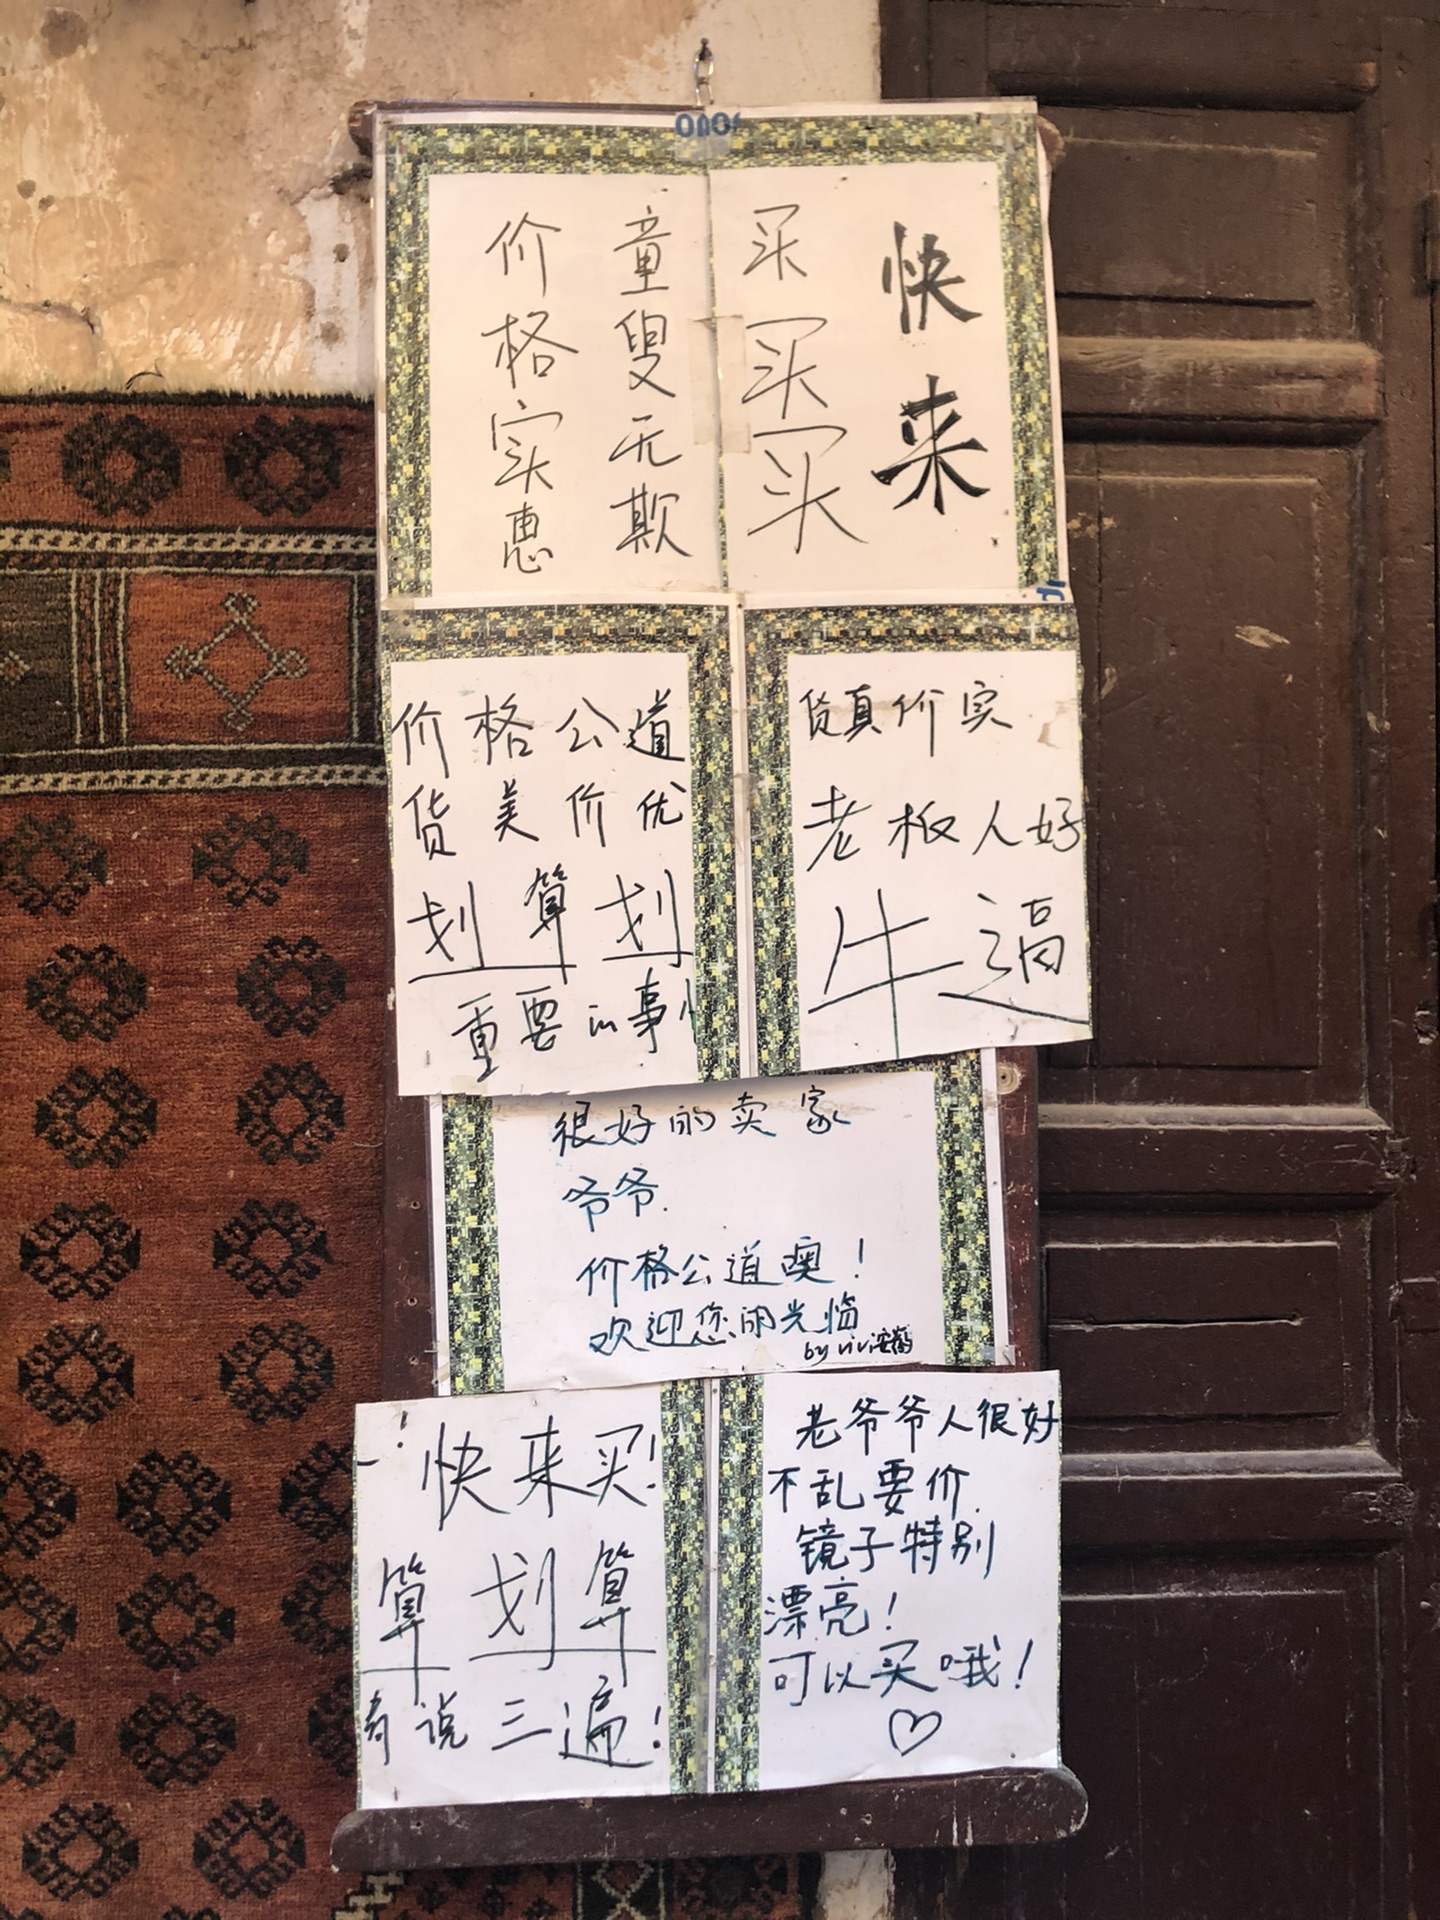 快来
买买买
童叟无欺
价格实惠
价格公道
货美价优
划算划
重要的事
货真价实
老板人好
牛逼
很好的卖家
爷爷.
价格公道奥！
欢迎您的光临
by vivi
！
快来买！
算 划算
说三遍！
老爷爷人很好
不乱要价.
镜子特别
漂亮！
可以买哦！
♡